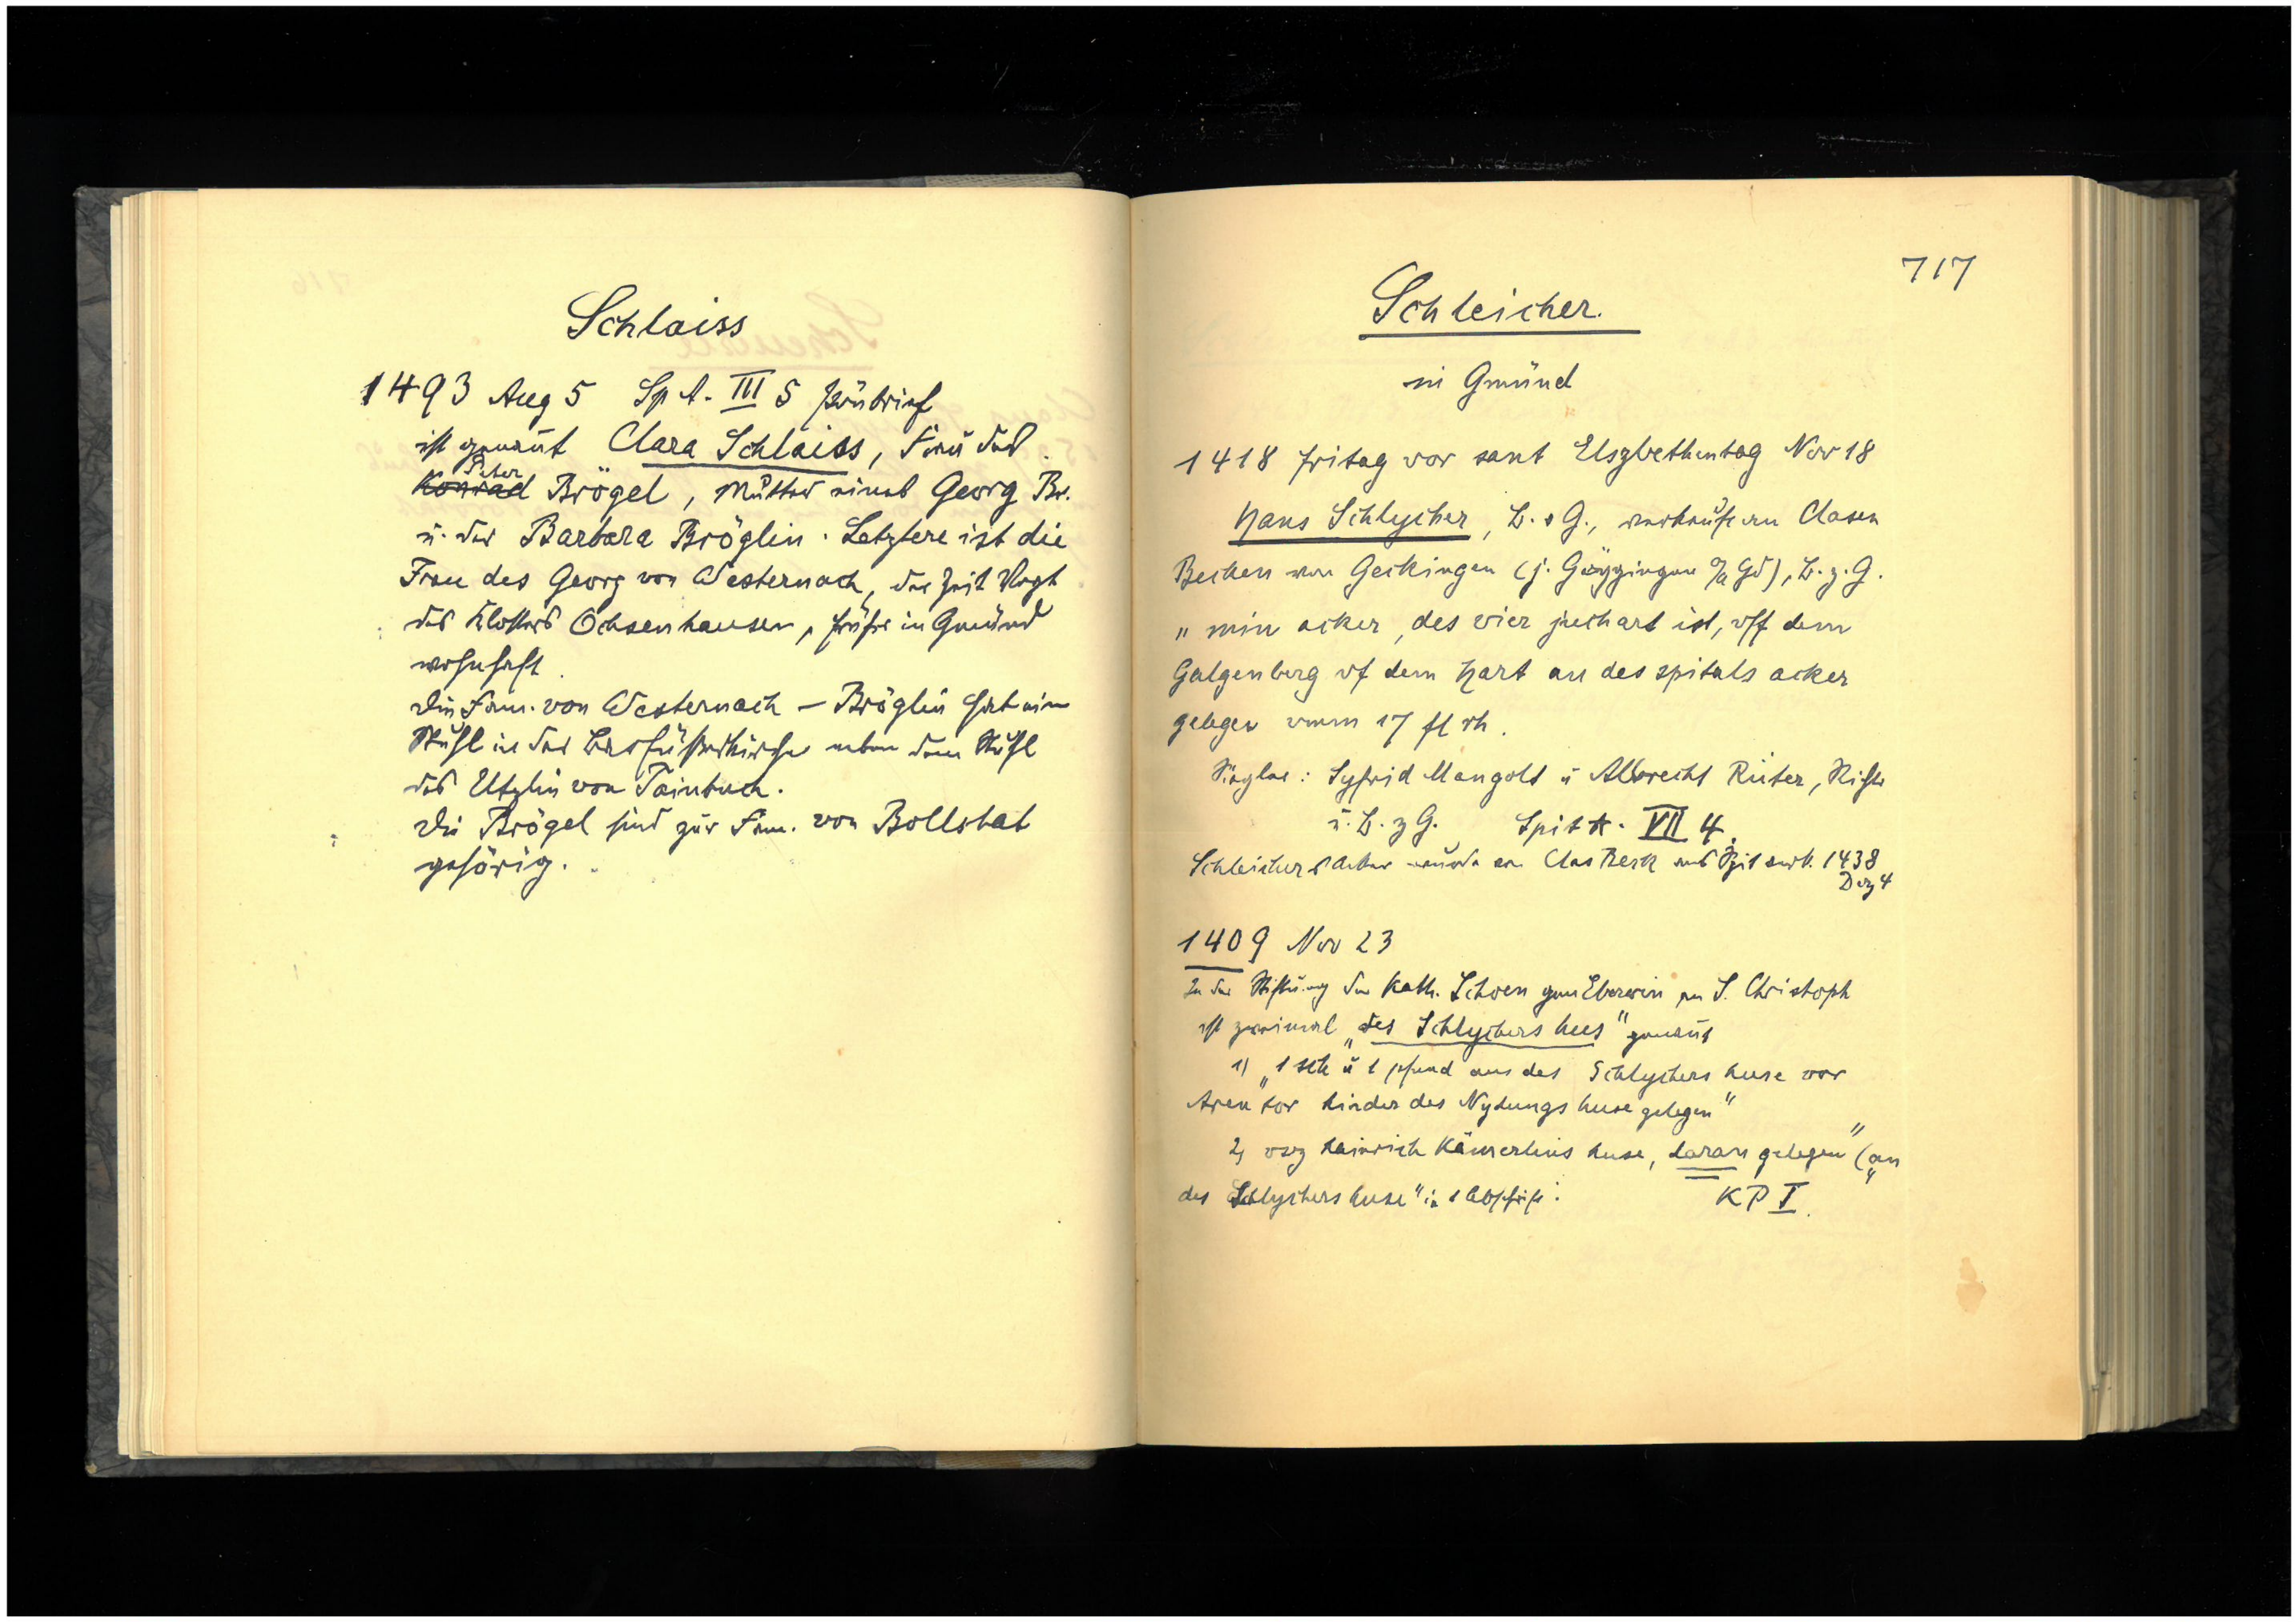 Schlaiss
1493 Aug 5 Sp A. III 5 
ist genannt Clara Schlaiss, Frau des
Peter
Konrad Brögel, Mutter eines Georg Br.
u. der Barbara Bröglin. Letztere ist die
Frau des Georg von Westernach, der Zeit Vogt
des Klosters Ochsenhausen, früher in Gmünd
wohnhaft
Die Fam. von Westernach – Bröglin hat ein
Stuhl in der Barfüsserkirche neben dem Stuhl
des Utzlin von Tainbuch.
Die Brögel sind zur Fam. von Bollstat
gehörig.
717
Schleicher.
in Gmünd
1418 fritag vor sant Elsgbethentag Nov 18
Hans Schlycher, B. z G., verkauft an Clasen
Becken von Geckingen (j. Göggingen O/A Gd), B. z. G.
„min acker, des vier juchart ist, vff dem
Galgenberg vf dem Hart an des spitals acker
gelegen vmm 17 fl rh.
Siegler: Syfrid Mangolt u Albrecht Rüter, Richter
u. B. z G. Spit A. VII 4.
Schleichers Acker wurde von Clas Beck ans Spit verk. 1438
Dez 4
1409 Nov 23
In der Stiftung der Kath. Schoen gen Eberwin an S. Christoph
ist zweimal „des Schlychers hus" genannt
1) „1 sch u 1 pfund aus des Schlychers huse vor
Aren tor hinder des Nytungs huse gelegen"
2, vsz Hainrich Kämerlins huse, daran gelegen" („an
des Schlychers huse" in 1 Abschrift. KP I.